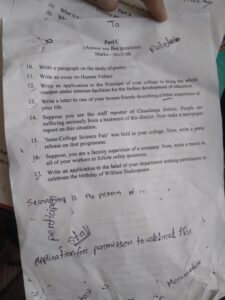 Ta
Part-C
(Answer any five questions)
10. Write a paragraph on the study of poetry.
11. Write an essay on Human Values.
12. Write an application to the Principal of your college to bring the whole campus under internet facilities for the further development of education.
13. Write a letter to one of your bosom friends describing a bitter experience of your life.
14. Suppose you are the staff reporter of Chuadanga district. People are suffering seriously from a heatwave of this district. Now make a newspaper report on this situation.
15. 'Inter-College Science Fair' was held in your college. Now, write a press release on that programme.
16. Suppose, you are a factory supervisor of a company. Now, write a memo to all of your workers to follow safety measures.
17. Write an application to the head of your department seeking permission to celebrate the birthday of William Shakespeare.
is the process of
Stall
Application for permission to
Memorandum